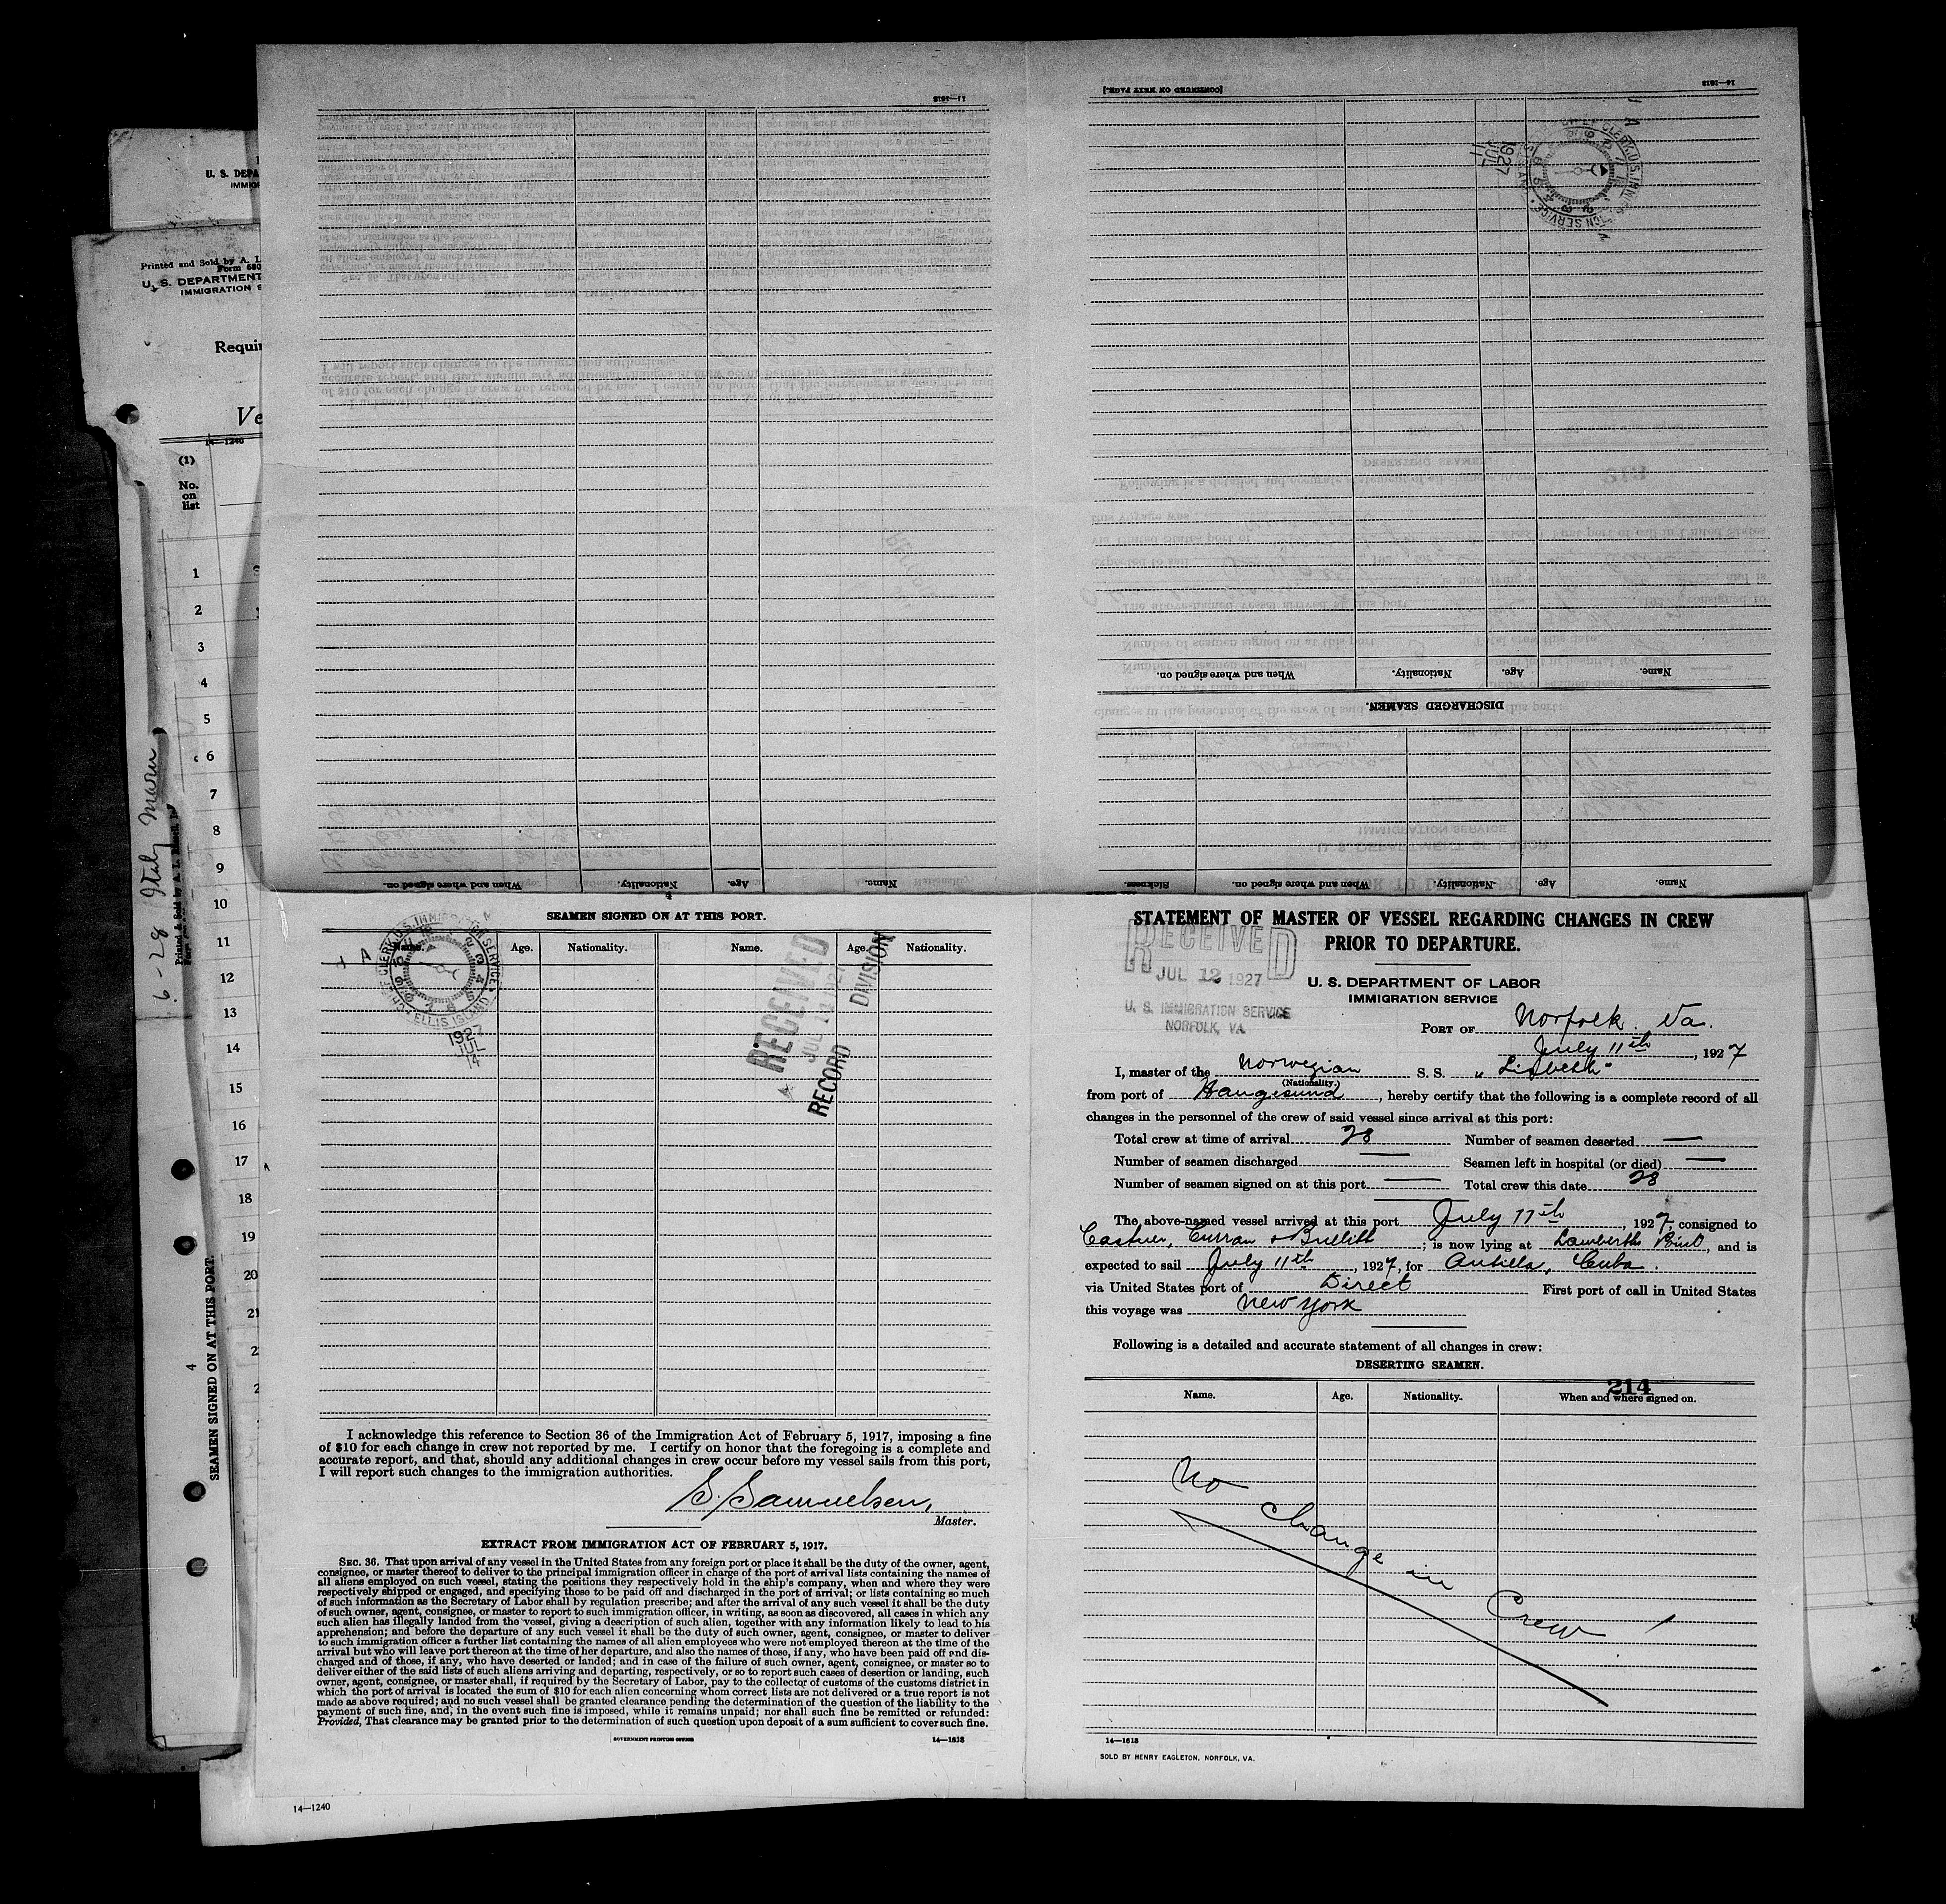 SEAMEN SIGNED ON AT THIS PORT.
Name. Age. Nationality. Name. Age. Nationality.
CHIEF CLERK U.S. IMMIGRATION SERVICE ELLIS ISLAND
1927
JUL
14
RECEIVED
RECORD DIVISION
I acknowledge this reference to Section 36 of the Immigration Act of February 5, 1917, imposing a fine
of $10 for each change in crew not reported by me. I certify on honor that the foregoing is a complete and
accurate report, and that, should any additional changes in crew occur before my vessel sails from this port,
I will report such changes to the immigration authorities.
S. Samuelsen,
Master.
EXTRACT FROM IMMIGRATION ACT OF FEBRUARY 5, 1917.
SEC. 36. That upon arrival of any vessel in the United States from any foreign port or place it shall be the duty of the owner, agent,
consignee, or master thereof to deliver to the principal immigration officer in charge of the port of arrival lists containing the names of
all aliens employed on such vessel, stating the positions they respectively hold in the ship's company, when and where they were
respectively shipped or engaged, and specifying those to be paid off and discharged in the port of arrival; or lists containing so much
of such information as the Secretary of Labor shall by regulation prescribe; and after the arrival of any such vessel it shall be the duty
of such owner, agent, consignee, or master to report to such immigration officer, in writing, as soon as discovered, all cases in which any
such alien has illegally landed from the vessel, giving a description of such alien, together with any information likely to lead to his
apprehension; and before the departure of any such vessel it shall be the duty of such owner, agent, consignee, or master to deliver
to such immigration officer a further list containing the names of all alien employees who were not employed thereon at the time of the
arrival but who will leave port thereon at the time of her departure, and also the names of those, if any, who have been paid off and dis-
charged and of those, if any, who have deserted or landed; and in case of the failure of such owner, agent, consignee, or master so to
deliver either of the said lists of such aliens arriving and departing, respectively, or so to report such cases of desertion or landing, such
owner, agent, consignee, or master shall, if required by the Secretary of Labor, pay to the collector of customs of the customs district in
which the port of arrival is located the sum of $10 for each alien concerning whom correct lists are not delivered or a true report is not
made as above required; and no such vessel shall be granted clearance pending the determination of the question of the liability to the
payment of such fine, and, in the event such fine is imposed, while it remains unpaid; nor shall such fine be remitted or refunded:
Provided, That clearance may be granted prior to the determination of such question upon deposit of a sum sufficient to cover such fine.
GOVERNMENT PRINTING OFFICE 14—1613
STATEMENT OF MASTER OF VESSEL REGARDING CHANGES IN CREW
PRIOR TO DEPARTURE.
RECEIVED
JUL 12 1927
U. S. IMMIGRATION SERVICE
NORFOLK, VA.
U. S. DEPARTMENT OF LABOR
IMMIGRATION SERVICE
PORT OF Norfolk, Va.
July 11th, 1927
I, master of the Norwegian S. S. "Lisbeth"
(Nationality.)
from port of Haugesund, hereby certify that the following is a complete record of all
changes in the personnel of the crew of said vessel since arrival at this port:
Total crew at time of arrival 28 Number of seamen deserted —
Number of seamen discharged — Seamen left in hospital (or died) —
Number of seamen signed on at this port — Total crew this date 28
The above-named vessel arrived at this port July 11th, 1927, consigned to
Castner, Curran & Bullitt; is now lying at Lamberts Point, and is
expected to sail July 11th, 1927, for Antilla, Cuba.
via United States port of Direct First port of call in United States
this voyage was New York
Following is a detailed and accurate statement of all changes in crew:
DESERTING SEAMEN.
214
Name. Age. Nationality. When and where signed on.
No change in Crew
14—1613
SOLD BY HENRY EAGLETON, NORFOLK, VA.
14—1613
[CONTINUED ON NEXT PAGE.]
1927
JUL
11
Name. Age. Nationality. When and where signed on.
DISCHARGED SEAMEN.
Name. Age. Nationality. When and where signed on. Sickness.
Name. Age. Nationality. When and where signed on.
U. S. DEPA
IMMIG
Printed and Sold by A. L
Form 680
U. S. DEPARTMENT
IMMIGRATION S
Requir
Ve
14—1240
(1)
No.
on
list
1
2
3
4
5
6
7
8
9
10
11
12
13
14
15
16
17
18
19
20
21
2
2
6-28 Italy Maru
4
SEAMEN SIGNED ON AT THIS PORT.
14—1240